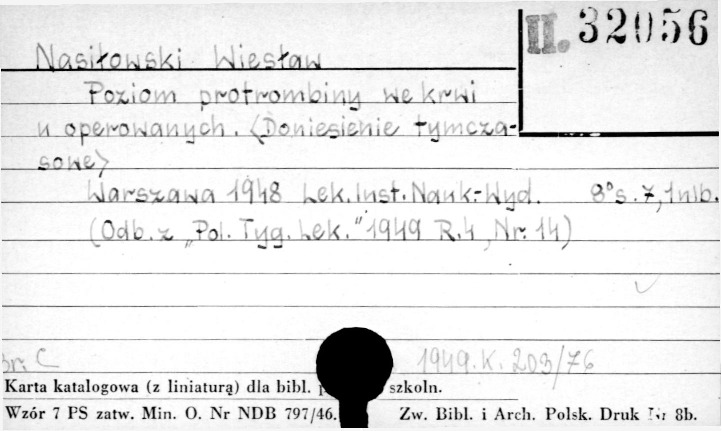 II. 32056
Nasiłowski Wiesław
Poziom protrombiny we krwi
u operowanych. <Doniesienie tymcza-
sowe>
Warszawa 1948 Lek. Inst. Nauk.-Wyd. 8° s. 7, 1 nlb.
(Odb. z „Pol. Tyg. Lek." 1949 R.4, Nr. 14)
Br. C 1949. K. 203/76
Karta katalogowa (z liniaturą) dla bibl. szkoln.
Wzór 7 PS zatw. Min. O. Nr NDB 797/46. Zw. Bibl. i Arch. Polsk. Druk Nr 8b.